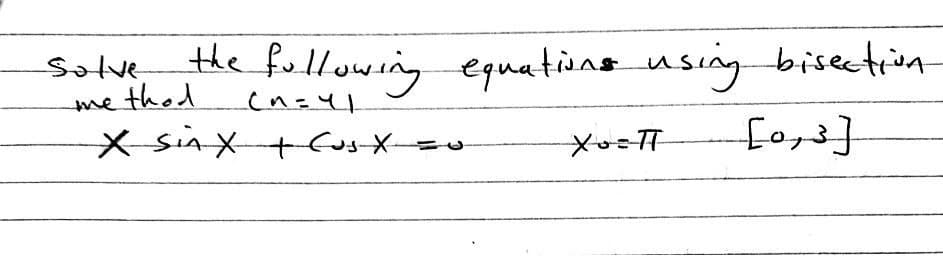 Solve the following equations using bisection
method (n=4)
x sin x + cos x = 0 x0=π [0,3]